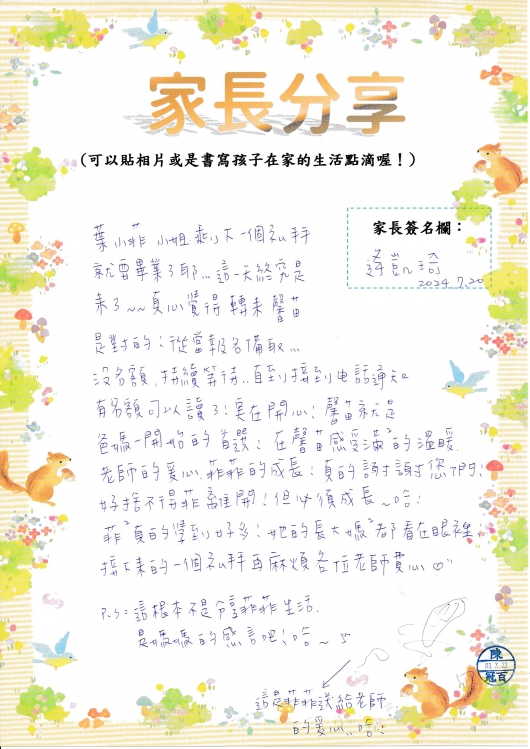 家長分享
(可以貼相片或是書寫孩子在家的生活點滴喔！)
家長簽名欄：
2024.7.20
葉小菲 小姐 剩下一個禮拜
就要畢業了耶...這一天終究是
來了~~真心覺得轉來馨苗
是對的!從當報名備取...
沒名額,持續等待..直到接到电話通知
有名額可以讀了!實在開心!馨苗就是
爸媽一開始的首選!在馨苗感受滿²的溫暖.
老師的愛心.菲菲的成長!真的謝謝您們!
好捨不得菲離開!但必須成長~哈!
菲²真的學到好多!她的長大媽²都看在眼裡,
接下來的一個禮拜再麻煩各位老師費心♡
P.S=這根本不是分享菲菲生活.
是媽媽的感言吧!哈~
這是菲菲送給老師
的愛心..哈!
陳
冠百